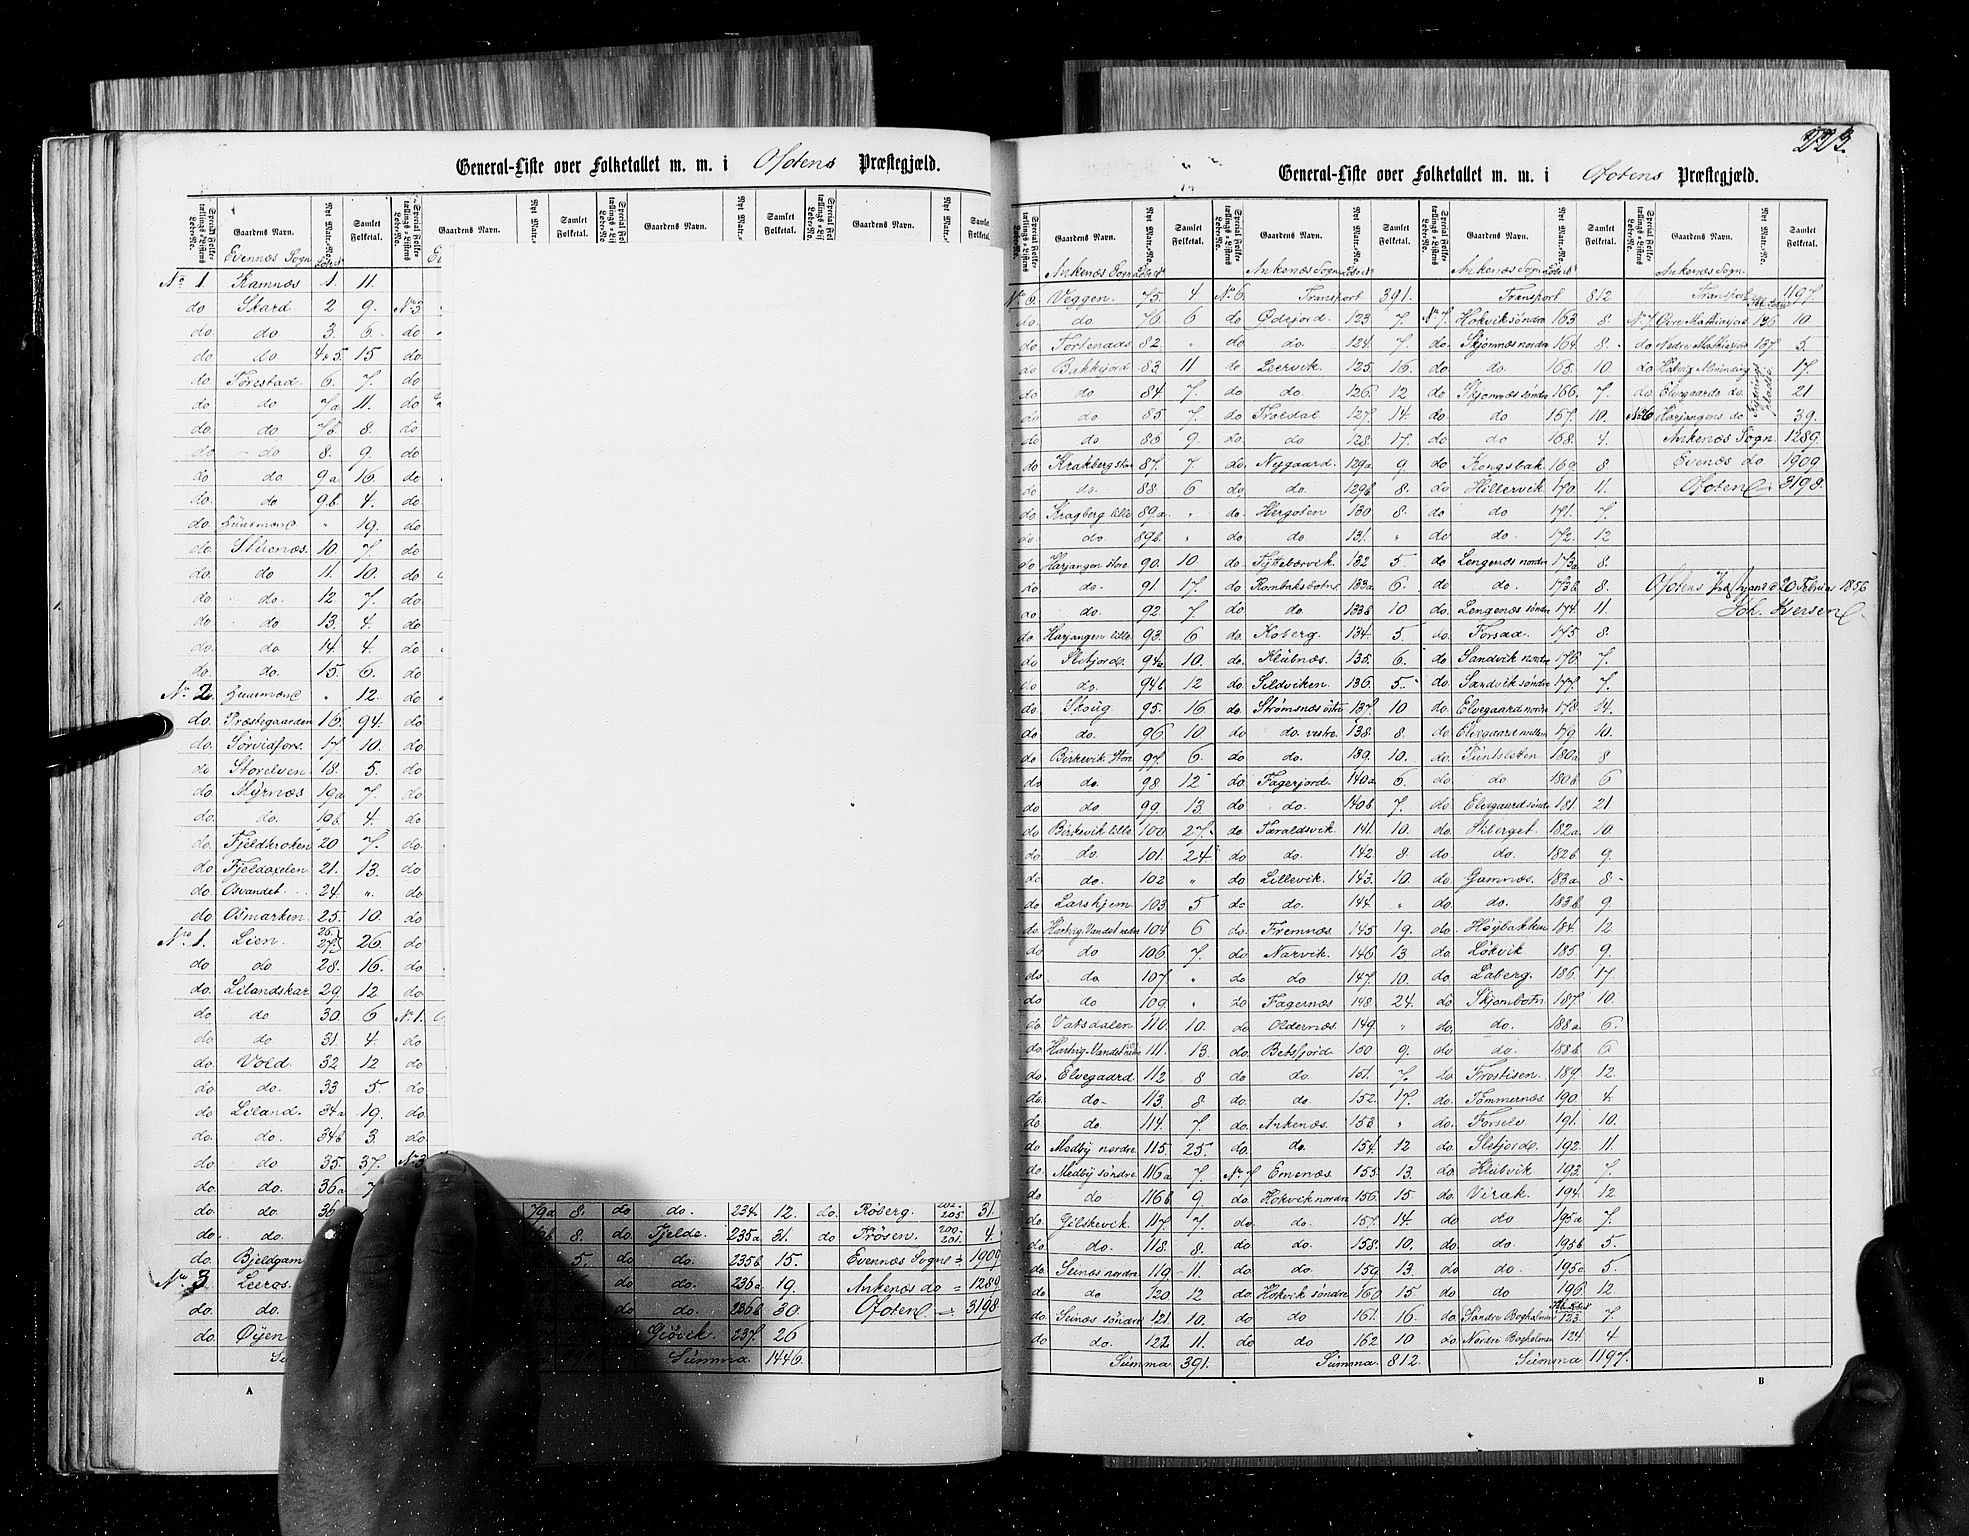 General-Liste over Folketallet m. m. i Ofotens Præstegjæld.
Special Folketællings-Listens Løbe-No. Gaardens Navn. Nyt Matr.-No. Samlet Folketal.
Evennæs Sogn
No 1. Ramnæs 1. 11.
do Skard 2 9. No 3
do do 3 6. do
do do 4 & 5. 15 do
do Tørestad. 6. 7. do
do do 7a 11. do
do do 7b 8. do
do do 8. 9. do
do do 9a 16. do
do do 9b 4. do
do Huusmænd " 19. do
do Stuenæs. 10. 7. do
do. do 11. 10. do
do do 12 7. do
do. do 13. 4. do
do do 14. 4. do
do. do 15. 6. do
No. 2. Huusmænd " 12. do
do. Præstegaarden 16. 94. do
do. Sørviafors. 17. 10. do
do Storelven 18. 5. do
do Myrnæs 19a 7. do
do do. 19b 4. do
do. Fjeldkroken 20 7. do
do Fjeldaxelen 21. 13. do
do. Osvandet 24. " do
do Osmarken 25. 10. do
No. 1. Lien. 26. 27. 26. do
do do 28. 16. do
do. Lilandskar 29. 12. do
do do 30. 6 No. 1.
do do 31. 4. do
do Vold 32 12 do
do do. 33 5. do
do Liland. 34a 19. do
do. do. 34b 3. do
do. do 35. 37. No 3
do. do. 36a 7
do. do 36 79a 8. do do. 234. 12. do. Røberg. 202- 205. 31.
do. do. 8. do Fjelde. 235a 21. do Frøsen. 200- 201. 4.
do Bjeldgam 5. do do. 235b 15. Evennæs Sogn 1909
No. 3 Leeros. do do. 236a 19. Ankenæs do = 1289
do. do. do do. 236b 30. Ofoten = 3198
do. Øyen Giøvik. 237. 26
Summa 1446.
A
223.
General-Liste over Folketallet m. m. i Ofotens Præstegjæld.
Special Folketællings-Listens Løbe-No. Gaardens Navn. Nyt Matr.-No. Samlet Folketal.
Ankenæs Sogn Ankenæs Sogn Ankenæs Sogn Ankenæs Sogn.
No. 6. Veggen. 75. 4 No. 6. Transport 391. Transport 812 Transport 1197.
do. do 76. 6 do Ødejord. 123 7. No 7. Hokvik søndre 163 8. No. 7. Øvre Mathisjord 136 10
do. Fortenads 82. " do do. 124. 7. do. Skjomnæs nordre 164. 8 do Nedre Mathisjord 137 5.
do Bakkejord 83 11 do Leervik. 125. 16. do do. 165. 10. do 17.
do do 84 7. do do. 126. 12 do Skjomnæs søndre 166. 7. do Elvegaards do. 21
do do 85 7. do Trældal 127. 14 do do 167. 10. No 6 Harjangens do 39.
do do 86 9. do. do. 128. 17. do do 168. 4. Ankenæs Sogn. 1289.
do Krakberg store 87. 7. do. Nygaard. 129a 9. do Kongsbak. 169. 8 Evenæs do 1909
do do. 88. 6 do. do. 129b 8. do Hillervik 170. 11. Ofoten 3198.
do. Kragberg lille 89a " do Hergoten 130 8. do do 171. 7.
do. do. 89b. " do do 131. " do do. 172. 12
do Harjangen store. 90. 10. do Tyttebærvik. 132 5. do Lengenæs nordre 173a 8.
do do 91 17. do Rombaksbotn. 133a 6. do do. 173b 8. Ofotens Præstegaard d. 20 Februar 1856
do do. 92 7. do do. 133b 10 do. Lengenæs søndre 174. 11. Joh. Iversen
do Harjangen lille 93. 6 do. Roberg. 134. 5. do Forsaa. 175 8.
do Slefjord. 94a 10. do. Klubnæs. 135. 6. do Sandvik nordre 176. 7.
do do. 94b 12 do. Sildviken. 136. 5. do Sandvik søndre 177. 7.
do Skoug 95. 16 do. Strømsnæs østre 137. 10 do Elvegaard nordre 178. 14.
do do. 96 10 do do. vestre 138. 8. do Elvegaard mellem 179. 10.
do Birkevik store 97. 6. do do. 139. 10. do Puntsletten 180a 8
do do. 98. 12 do. Fagerjord. 140a 6. do do 180b 6
do do 99. 13. do do. 140b 7. do Elvegaard søndre 181 21
do Birkevik lille. 100 27. do Taraldsvik. 141. 10. do Stiberget. 182a 10
do do. 101. 24. do do. 142 8. do do. 182b 9.
do do. 102 " do Lillevik. 143. 10. do. Gamnæs. 183a 8
do Larshjem. 103 5 do do. 144. " do do. 183b 9.
do. Hartvig-Vandet nedre 104 6 do. Fremnæs. 145 19. do Høybakken 184. 12
do do 106 7. do Narvik. 146 13 do. Løkvik 185 9.
do do. 107. " do do 147. 10. do Laberg. 186. 17.
do do 109. " do Fagernæs 148. 24. do Skjombotn 187. 10.
do Vatsdalen 110. 10. do Oldernæs 149. " do do. 188a 6.
do. Hartvig-Vandet 111. 13. do. Beisfjord 150 9. do do. 188b 6
do. Elvegaard 112 8 do do. 151. 7. do Frostisen. 189. 12.
do do- 113. 8 do. do 152. 17. do. Tømmernæs 190. 4.
do do 114. 7. do. Ankenæs. 153 " do. Forselv. 191. 10.
do Medby nordre. 115. 25. do do. 154. 12 do Slefjord. 192. 11.
do. Medby søndre 116a 7. No. 7 Emenæs. 155. 13. do. Klubvik 193. 7.
do do 116b 9. do. Hokvik nordre 156. 15 do. Virak. 194. 12
do. Gilskevik. 117. 7. do do. 157. 14. do do 195a 7.
do do. 118. 8. do do. 158. 10. do. do 195b 5.
do Seinæs nordre 119 11. do do 159 13. do do 195c 5.
do. do 120 12 do. Hokvik søndre 160 15 do do 196. 12
do. Seinæs søndre 121. 10. do do 161. 16. do. Søndre Bogholmen 123. 7.
do do. 122. 11. do do 162 10 do. Nordre Bogholmen 124. 4
Summa 391. Summa. 812. Summa 1197.
B